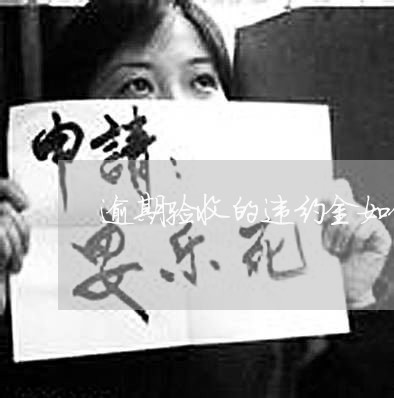 申請：
逾期验收的违约金如
安乐死